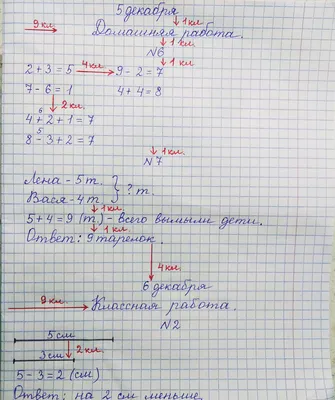 5 декабря
1кл.
9 кл. Домашняя работа.
1кл.
N6
1кл.
2 + 3 = 5 4кл. 9 - 2 = 7
7 - 6 = 1 4 + 4 = 8
2 кл.
6
4 + 2 + 1 = 7
5
8 - 3 + 2 = 7
1 кл.
N7
Лена - 5 т. } ? т.
Вася - 4 т.
1кл.
5 + 4 = 9 (т) - всего вымыли дети.
1кл.
Ответ: 9 тарелок.
4кл.
6 декабря
1кл.
9кл. Классная работа.
N2
5 см
3см 2 кл.
5 - 3 = 2 (см)
Ответ: на 2 см меньше.